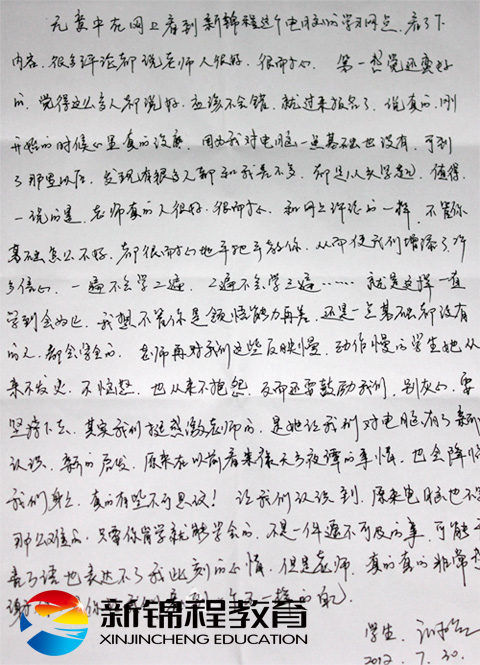 无意中在网上看到新锦程这个电脑的学习网点，看了下
内容，很多评论都说老师人很好，很耐心，第一感觉还蛮好
的，觉得这么多人都说好，应该不会错，就过来报名了，说真的，刚
开始的时候心里真的没底，因为我对电脑一点基础也没有，可到
了那里以后，发现有很多人都和我差不多，都是从头学起，值得
一说的是，老师真的人很好，很耐心，和网上评论的一样，不管你
基础怎么不好，都很耐心地手把手教你，从而使我们增添了许
多信心，一遍不会学二遍，二遍不会学三遍……就是这样一直
学到会为止，我想不管你是领悟能力再差，还是一点基础都没有
的人，都会学会的，老师再对我们这些反映慢，动作慢的学生她从
来不发火，不恼怒，也从来不抱怨，反而还要鼓励我们，别灰心，要
坚持下去，其实我们挺感激老师的，是她让我们对电脑有了新的
认识，新的启发，原来在以前看来像天方夜谭的事情，也会降临
我们身上，真的有些不可思议！让我们认识到，原来电脑也不
那么难的，只要你肯学就能学会的，不是一件遥不可及的事，可能
言语也表达不了我此刻的心情，但是老师，真的真的非常
谢 不一样的自己
学生：
2012.7.30.
新锦程教育
XINJINCHENG EDUCATION